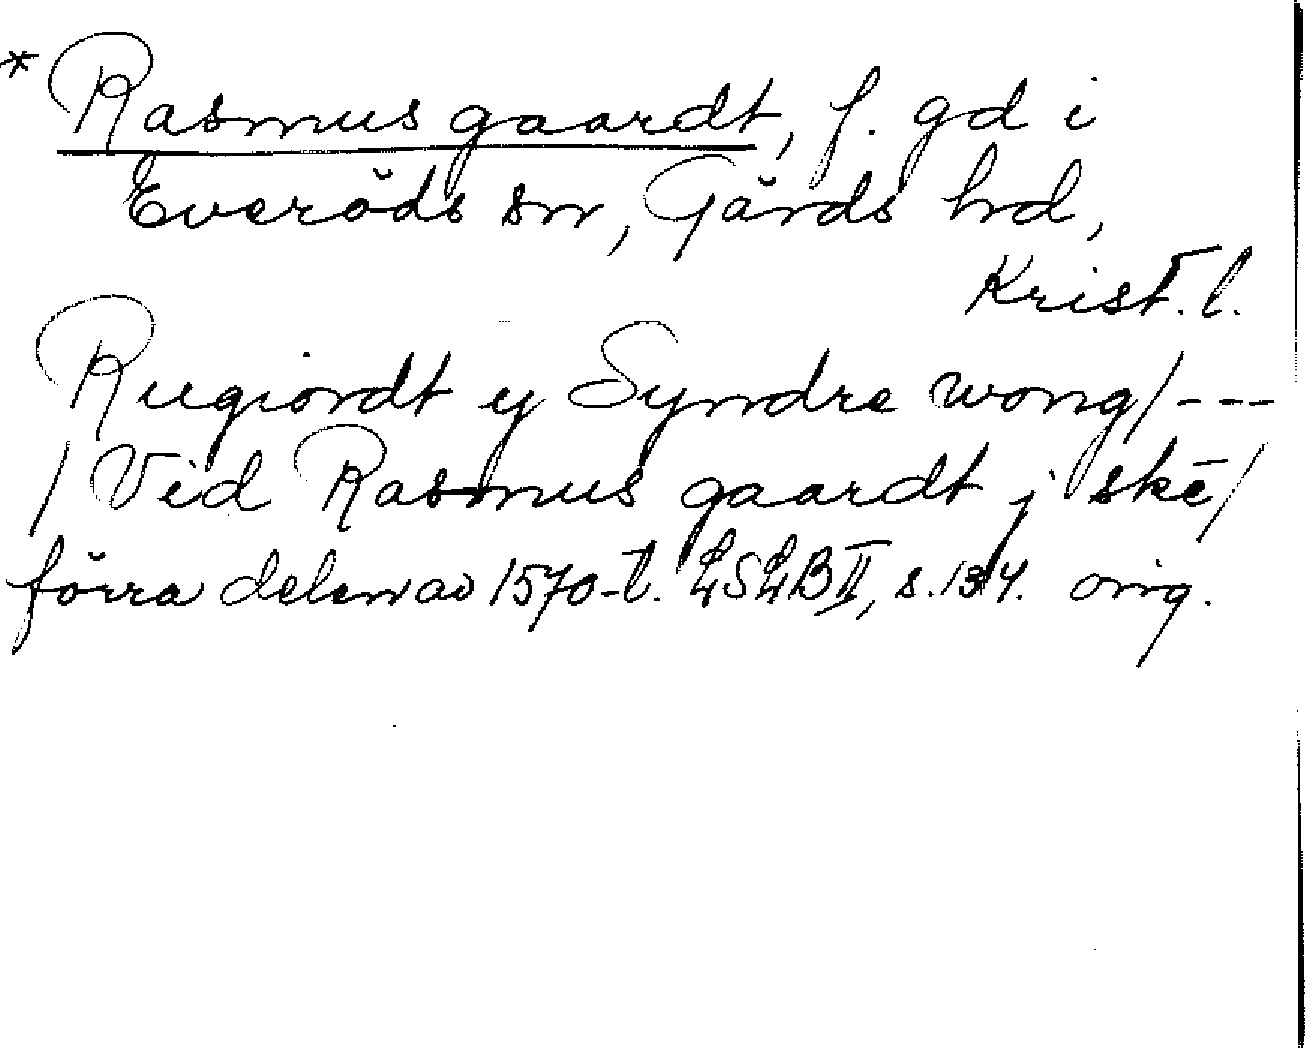 * Rasmus gaardt, f. gd i
Everöds sn, Gärds hd,
Krist. l.
Rugiordt y Syndre wong/---
/Vid Rasmus gaardt j skē/
förra delen av 1570-t. LSLB II, s. 134. orig.